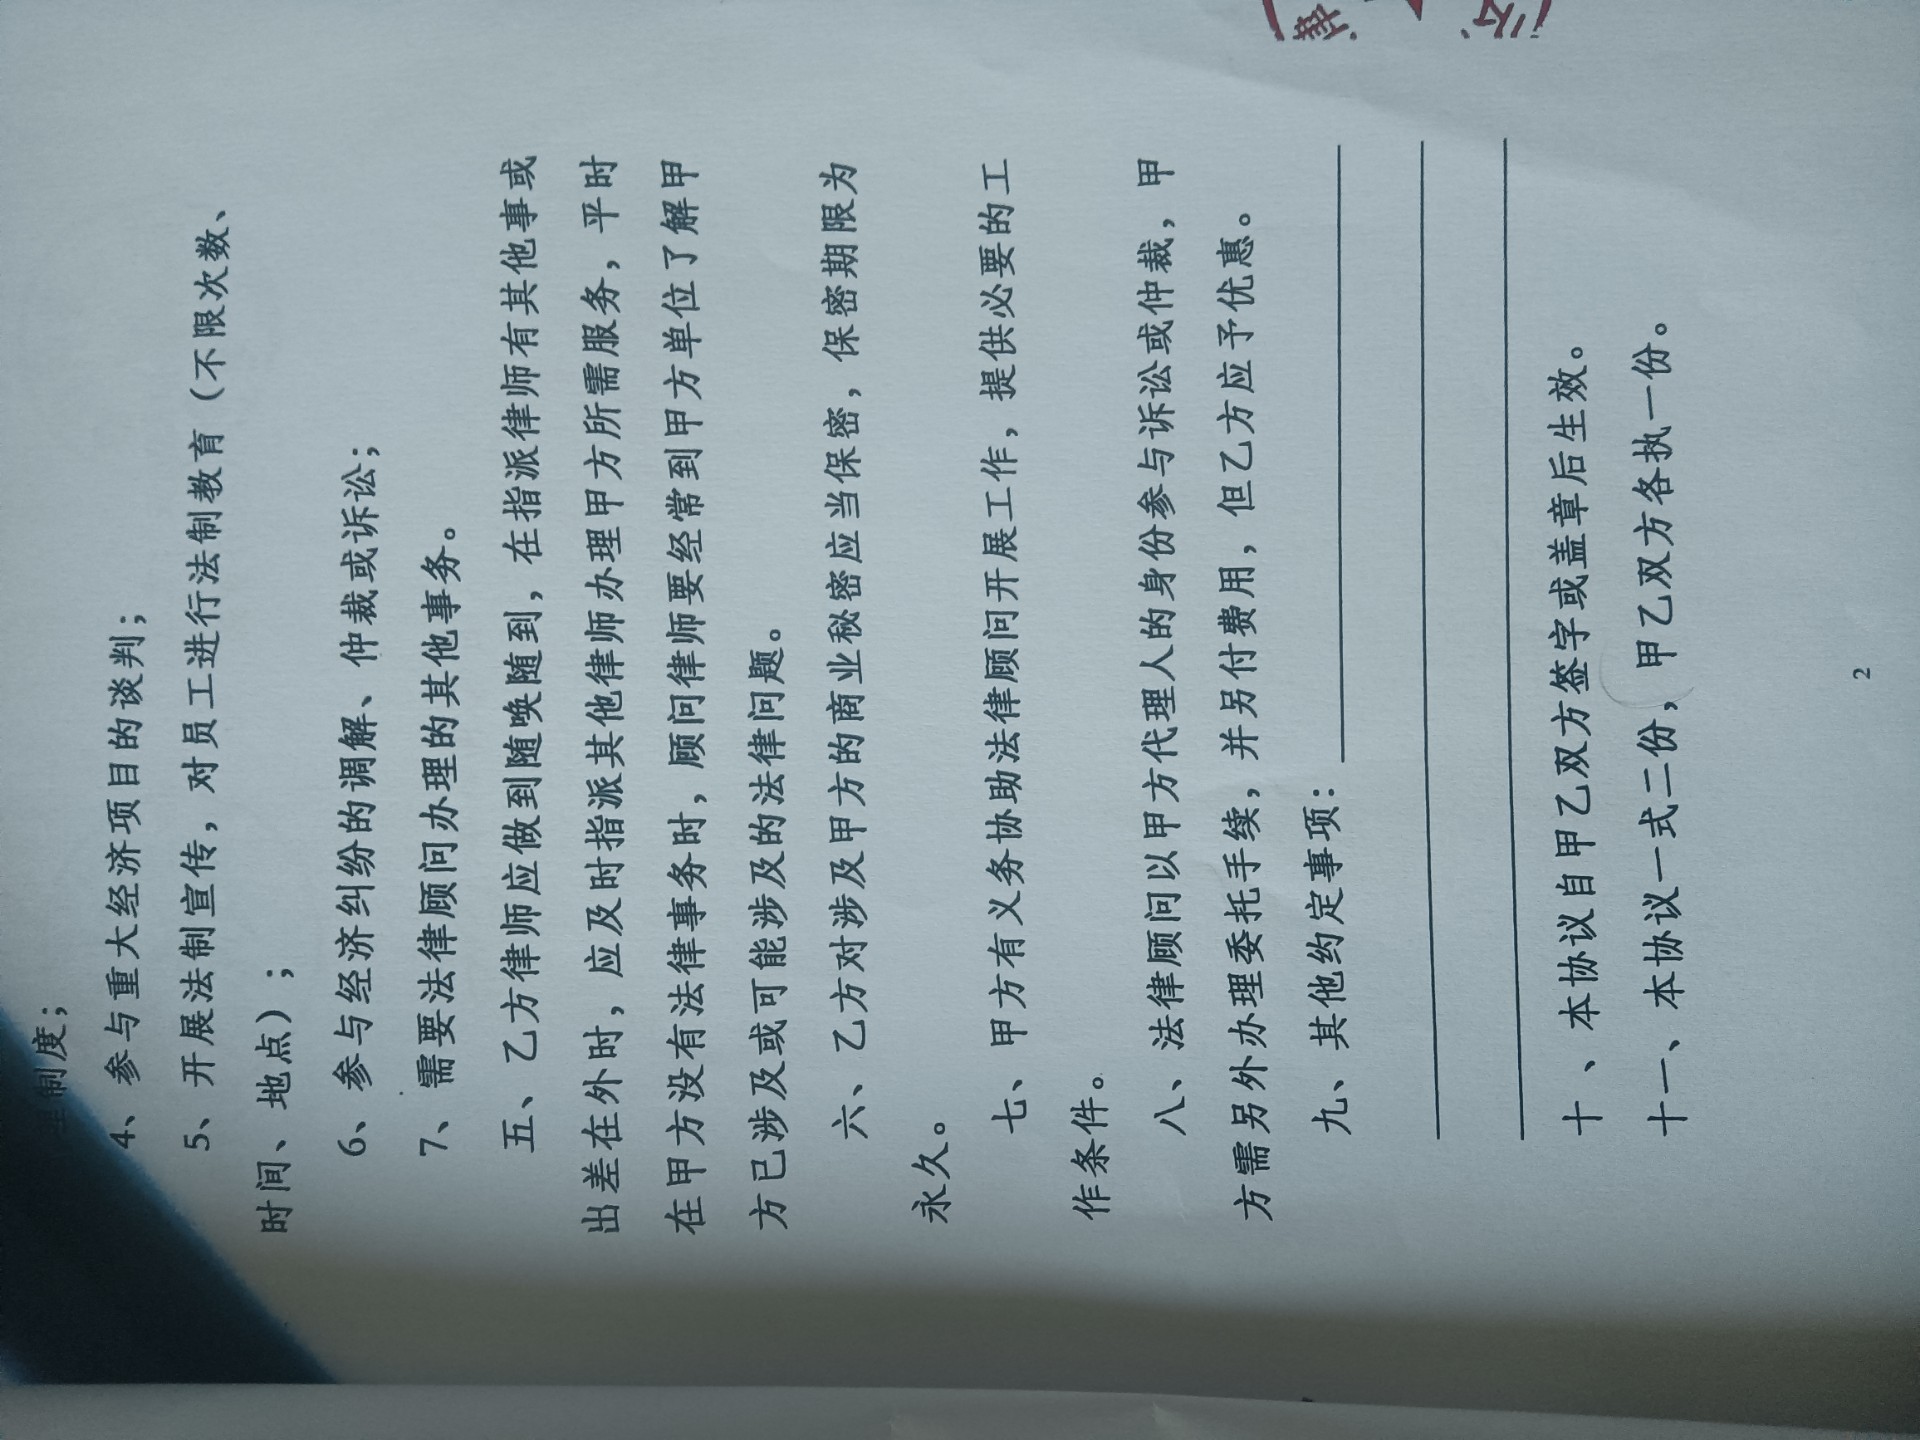 制度；
4、参与重大经济项目的谈判；
5、开展法制宣传，对员工进行法制教育（不限次数、
时间、地点）；
6、参与经济纠纷的调解、仲裁或诉讼；
7、需要法律顾问办理的其他事务。
五、乙方律师应做到随唤随到，在指派律师有其他事或
出差在外时，应及时指派其他律师办理甲方所需服务，平时
在甲方没有法律事务时，顾问律师要经常到甲方单位了解甲
方已涉及或可能涉及的法律问题。
六、乙方对涉及甲方的商业秘密应当保密，保密期限为
永久。
七、甲方有义务协助法律顾问开展工作，提供必要的工
作条件。
八、法律顾问以甲方代理人的身份参与诉讼或仲裁，甲
方需另外办理委托手续，并另付费用，但乙方应予优惠。
九、其他约定事项：
十、本协议自甲乙双方签字或盖章后生效。
十一、本协议一式二份，甲乙双方各执一份。
2